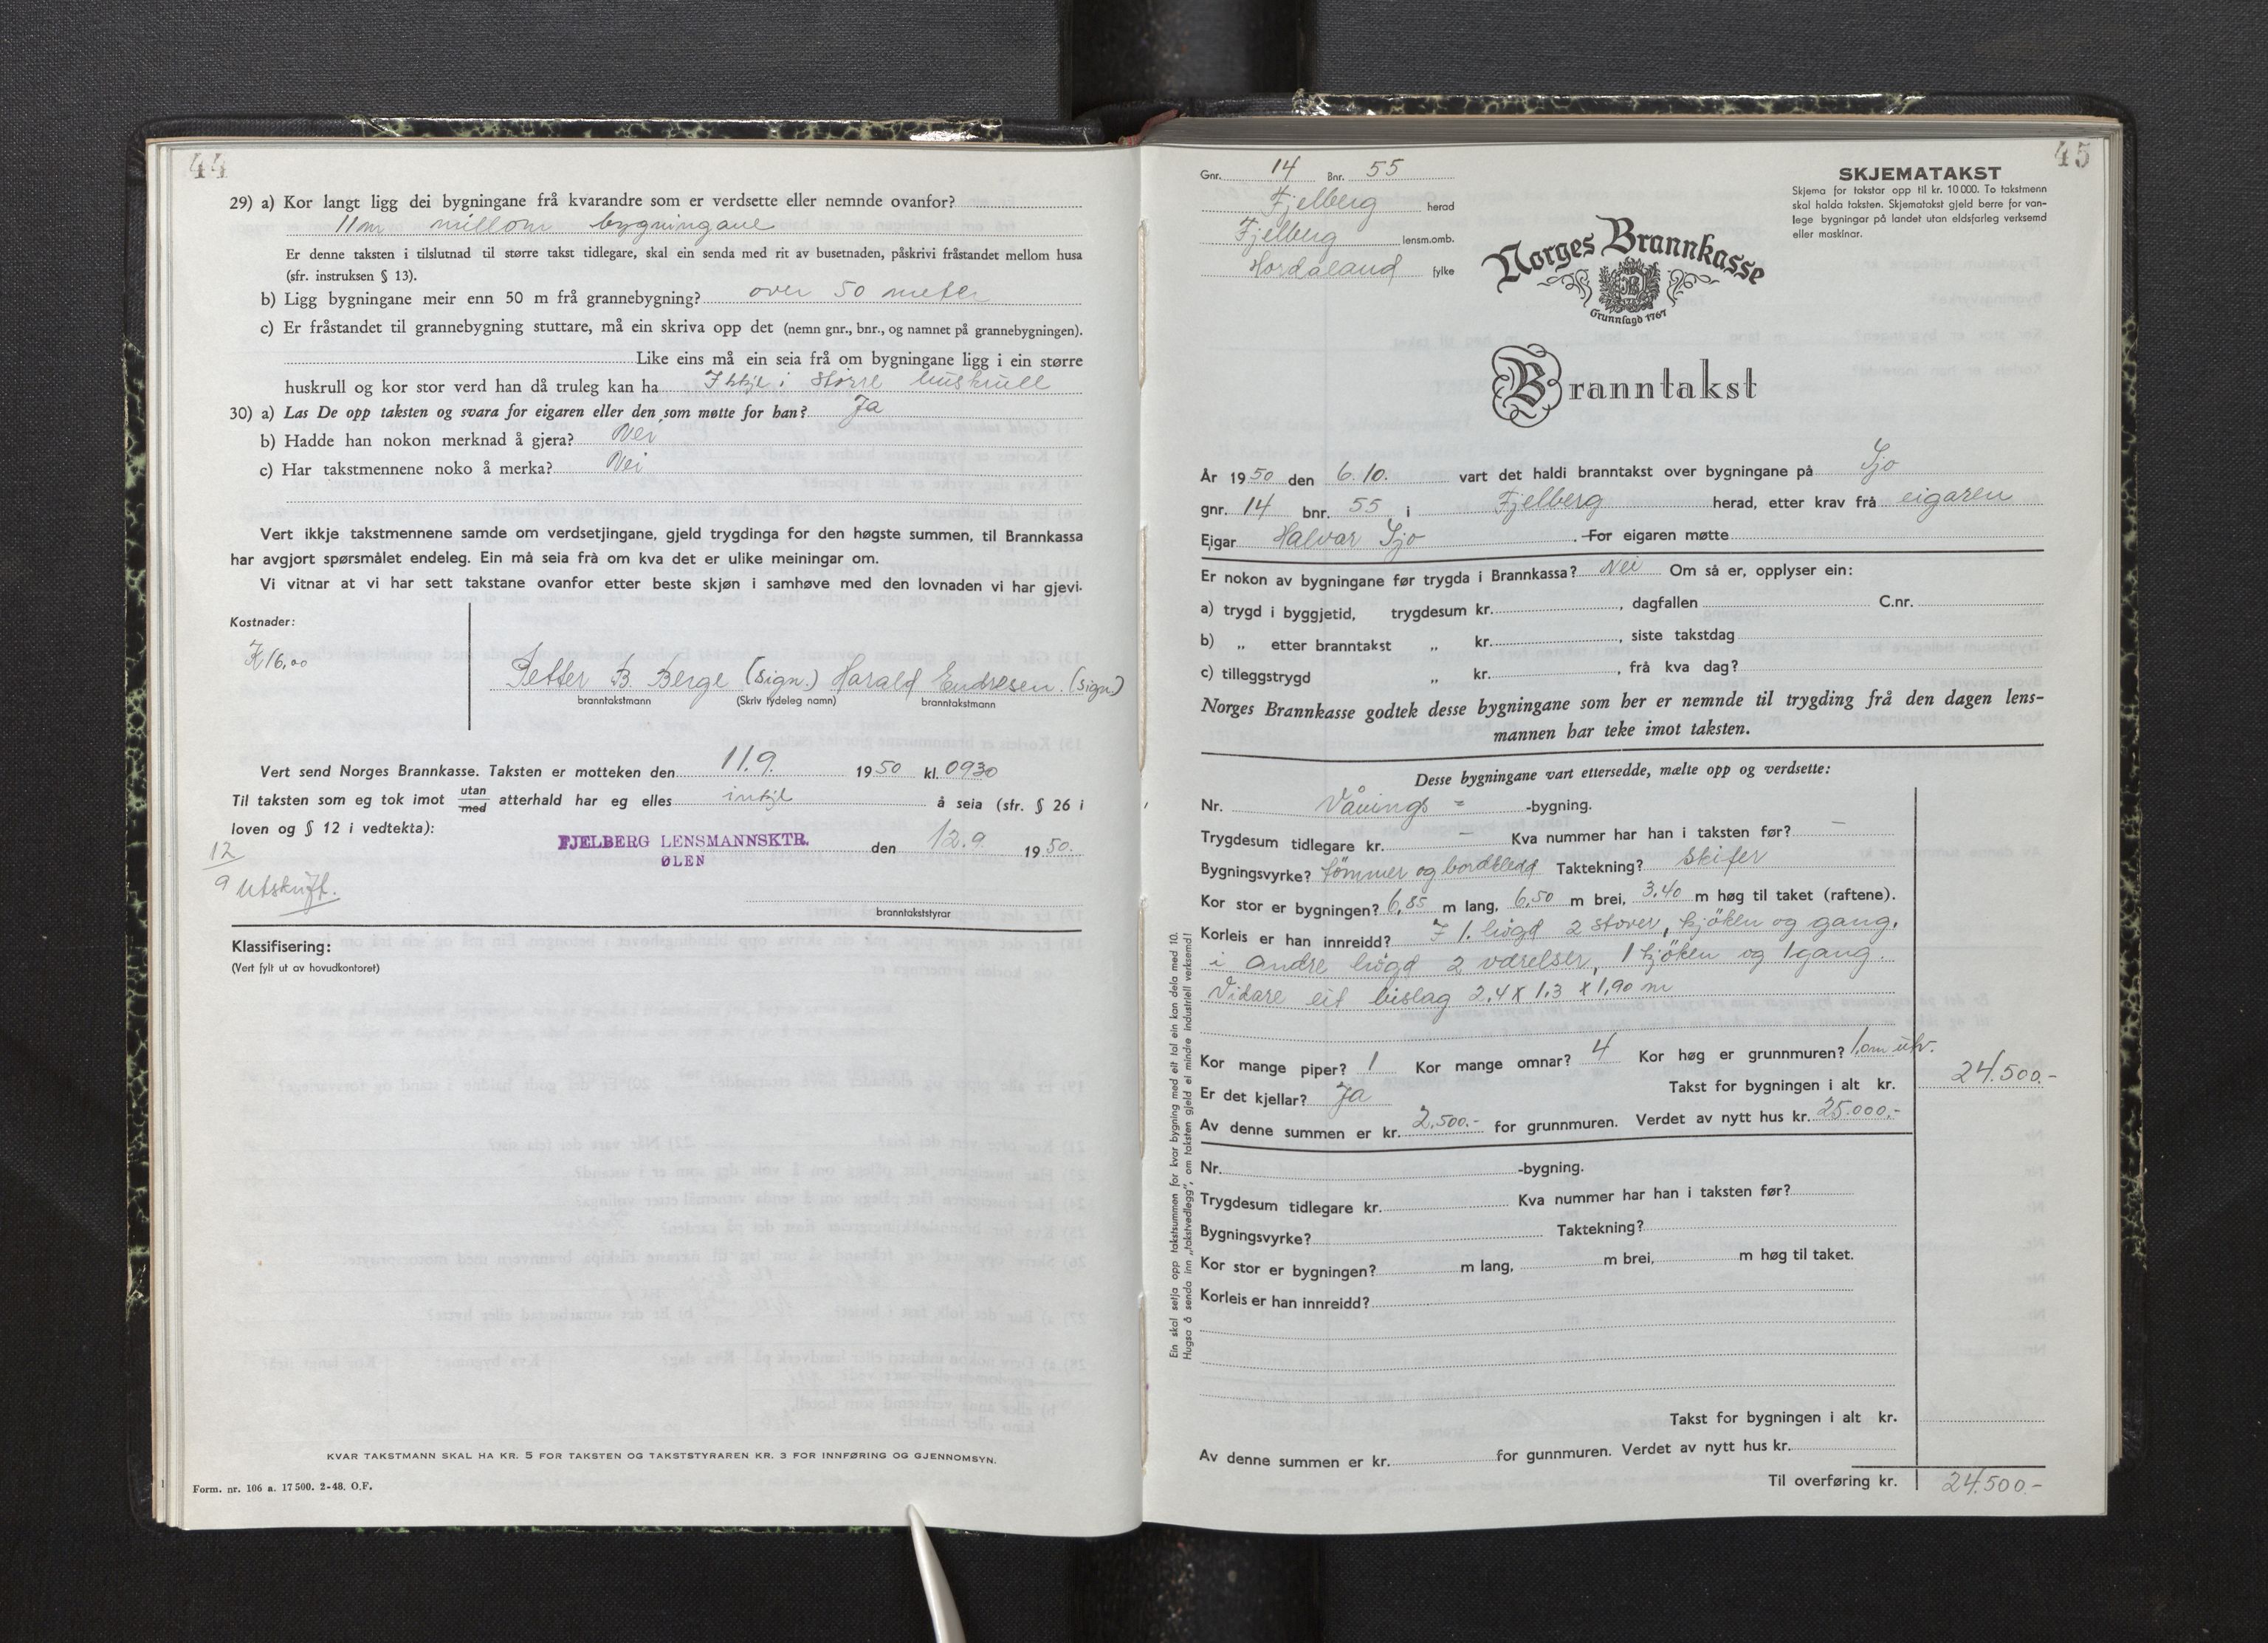 44
29) a) Kor langt ligg dei bygningane frå kvarandre som er verdsette eller nemnde ovanfor?
11m millom bygningane
Er denne taksten i tilslutnad til større takst tidlegare, skal ein senda med rit av busetnaden, påskrivi fråstandet mellom husa
(sfr. instruksen § 13).
b) Ligg bygningane meir enn 50 m frå grannebygning? over 50 meter
c) Er fråstandet til grannebygning stuttare, må ein skriva opp det (nemn gnr., bnr., og namnet på grannebygningen).
Like eins må ein seia frå om bygningane ligg i ein større
huskrull og kor stor verd han då truleg kan ha Ikkje i större huskrull
30) a) Las De opp taksten og svara for eigaren eller den som møtte for han? Ja
b) Hadde han nokon merknad å gjera? Nei
c) Har takstmennene noko å merka? Nei
Vert ikkje takstmennene samde om verdsetjingane, gjeld trygdinga for den høgste summen, til Brannkassa
har avgjort spørsmålet endeleg. Ein må seia frå om kva det er ulike meiningar om.
Vi vitnar at vi har sett takstane ovanfor etter beste skjøn i samhøve med den lovnaden vi har gjevi.
Kostnader:
K 16,00
Petter B. Berge (sign.) Harald Endresen. (sign)
branntakstmann (Skriv tydeleg namn) branntakstmann
Vert send Norges Brannkasse. Taksten er motteken den 11.9. 1950 kl. 0930
Til taksten som eg tok imot utan/med atterhald har eg elles intkje å seia (sfr. § 26 i
loven og § 12 i vedtekta):
FJELBERG LENSMANNSKTR.
ØLEN
den 12.9 1950.
12/9 Utskrift.
branntakststyrar
Klassifisering:
(Vert fylt ut av hovudkontoret)
KVAR TAKSTMANN SKAL HA KR. 5 FOR TAKSTEN OG TAKSTSTYRAREN KR. 3 FOR INNFØRING OG GJENNOMSYN.
Form. nr. 106 a. 17 500. 2-48. O.F.
45
Gnr. 14 Bnr. 55
Fjelberg herad
Fjelberg lensm.omb.
Hordaland fylke
SKJEMATAKST
Skjema for takstar opp til kr. 10 000. To takstmenn
skal halda taksten. Skjematakst gjeld berre for van-
lege bygningar på landet utan eldsfarleg verksemd
eller maskinar.
Norges Brannkasse
Grunnlagd 1767
Branntakst
År 1950 den 6.10. vart det haldi branntakst over bygningane på Sjo
gnr. 14 bnr. 55 i Fjelberg herad, etter krav frå eigaren
Eigar Halvar Sjo . For eigaren møtte
Er nokon av bygningane før trygda i Brannkassa? Nei Om så er, opplyser ein:
a) trygd i byggjetid, trygdesum kr. , dagfallen C.nr.
b) „ etter branntakst „ kr. , siste takstdag
c) tilleggstrygd „ kr. , frå kva dag?
Norges Brannkasse godtek desse bygningane som her er nemnde til trygding frå den dagen lens-
mannen har teke imot taksten.
Desse bygningane vart ettersedde, mælte opp og verdsette:
Nr. Vånings- -bygning.
Trygdesum tidlegare kr. – Kva nummer har han i taksten før? –
Bygningsvyrke? tömmer og bordkledd Taktekning? Skifer
Kor stor er bygningen? 6,85 m lang, 6,50 m brei, 3,40 m høg til taket (raftene).
Korleis er han innreidd? I 1. högd 2 stover, kjöken og gang.
i andre högd 2 værelser, 1 kjöken og 1 gang.
Vidare eit bislag 2,4 x 1,3 x 1,90 m
Kor mange piper? 1 Kor mange omnar? 4 Kor høg er grunnmuren?
Er det kjellar? Ja Takst for bygningen i alt kr. 24.500.-
Av denne summen er kr. 2.500.- for grunnmuren. Verdet av nytt hus kr. 25.000.-
Nr. -bygning.
Trygdesum tidlegare kr. Kva nummer har han i taksten før?
Bygningsvyrke? Taktekning?
Kor stor er bygningen? m lang, m brei, m høg til taket.
Korleis er han innreidd?
Takst for bygningen i alt kr.
Av denne summen er kr. for gunnmuren. Verdet av nytt hus kr.
Til overføring kr. 24.500.-
Ein skal setja opp takstsummen for kvar bygning med eit tal ein kan dela med 10.
Hugsa å senda inn „takstvedlegg", om taksten gjeld ei mindre industriell verksemd!